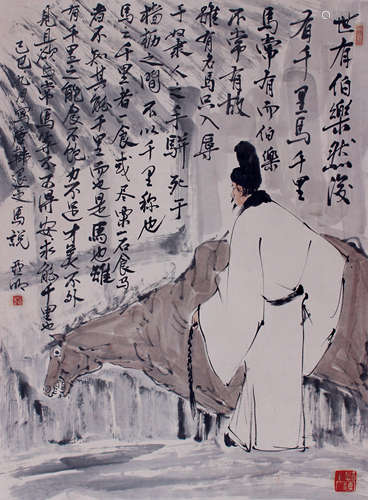 世有伯樂然後
有千里馬千里
馬常有而伯樂
不常有故
雖有名馬只辱
于奴隸人之手駢死于
槽櫪之間不以千里稱也
馬之千里者一食或尽粟一石食馬
者不知其能千里而也是馬也雖
有千里之能食不飽力不足才美不外
見且欲與常馬等不可得安求能千里也
己巳 寫韓愈之馬說 亞明